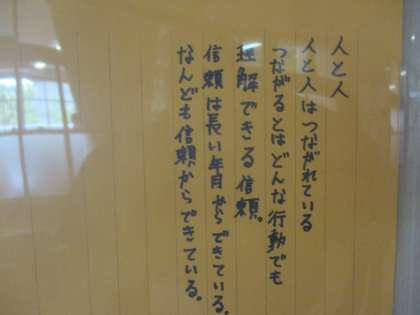 人と人
人と人はつながれている
つながるとはどんな行動でも
理解できる信頼。
信頼は長い年月からできている。
なんども信頼からできている。